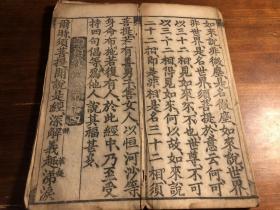 如來說非微塵是名微塵如來說世界
非世界是名世界須菩提於意云何可
以三十二相見如來不不也世尊不可
以三十二相得見如來何以故如來說
三十二相即是非相是名三十二相須
菩提若有善男子善女人以恒河沙等
身命布施若復有人於此經中乃至受
持四句偈等為他人說其福甚多
爾時須菩提聞說是經深解義趣涕淚